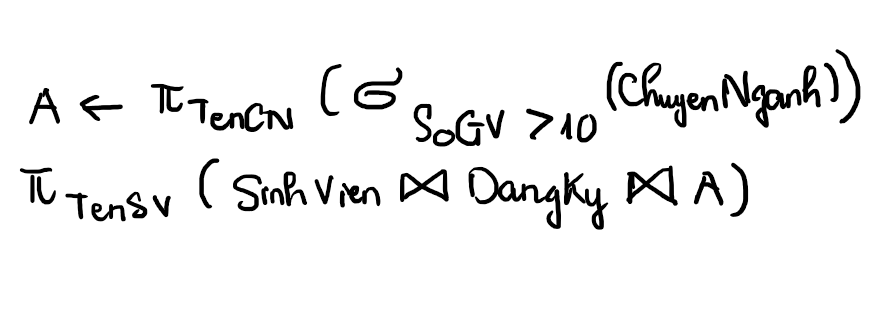 A ← π TenCN (σ SoGV > 10 (ChuyenNganh))
π TenSV (Sinh Vien ⋈ DangKy ⋈ A)